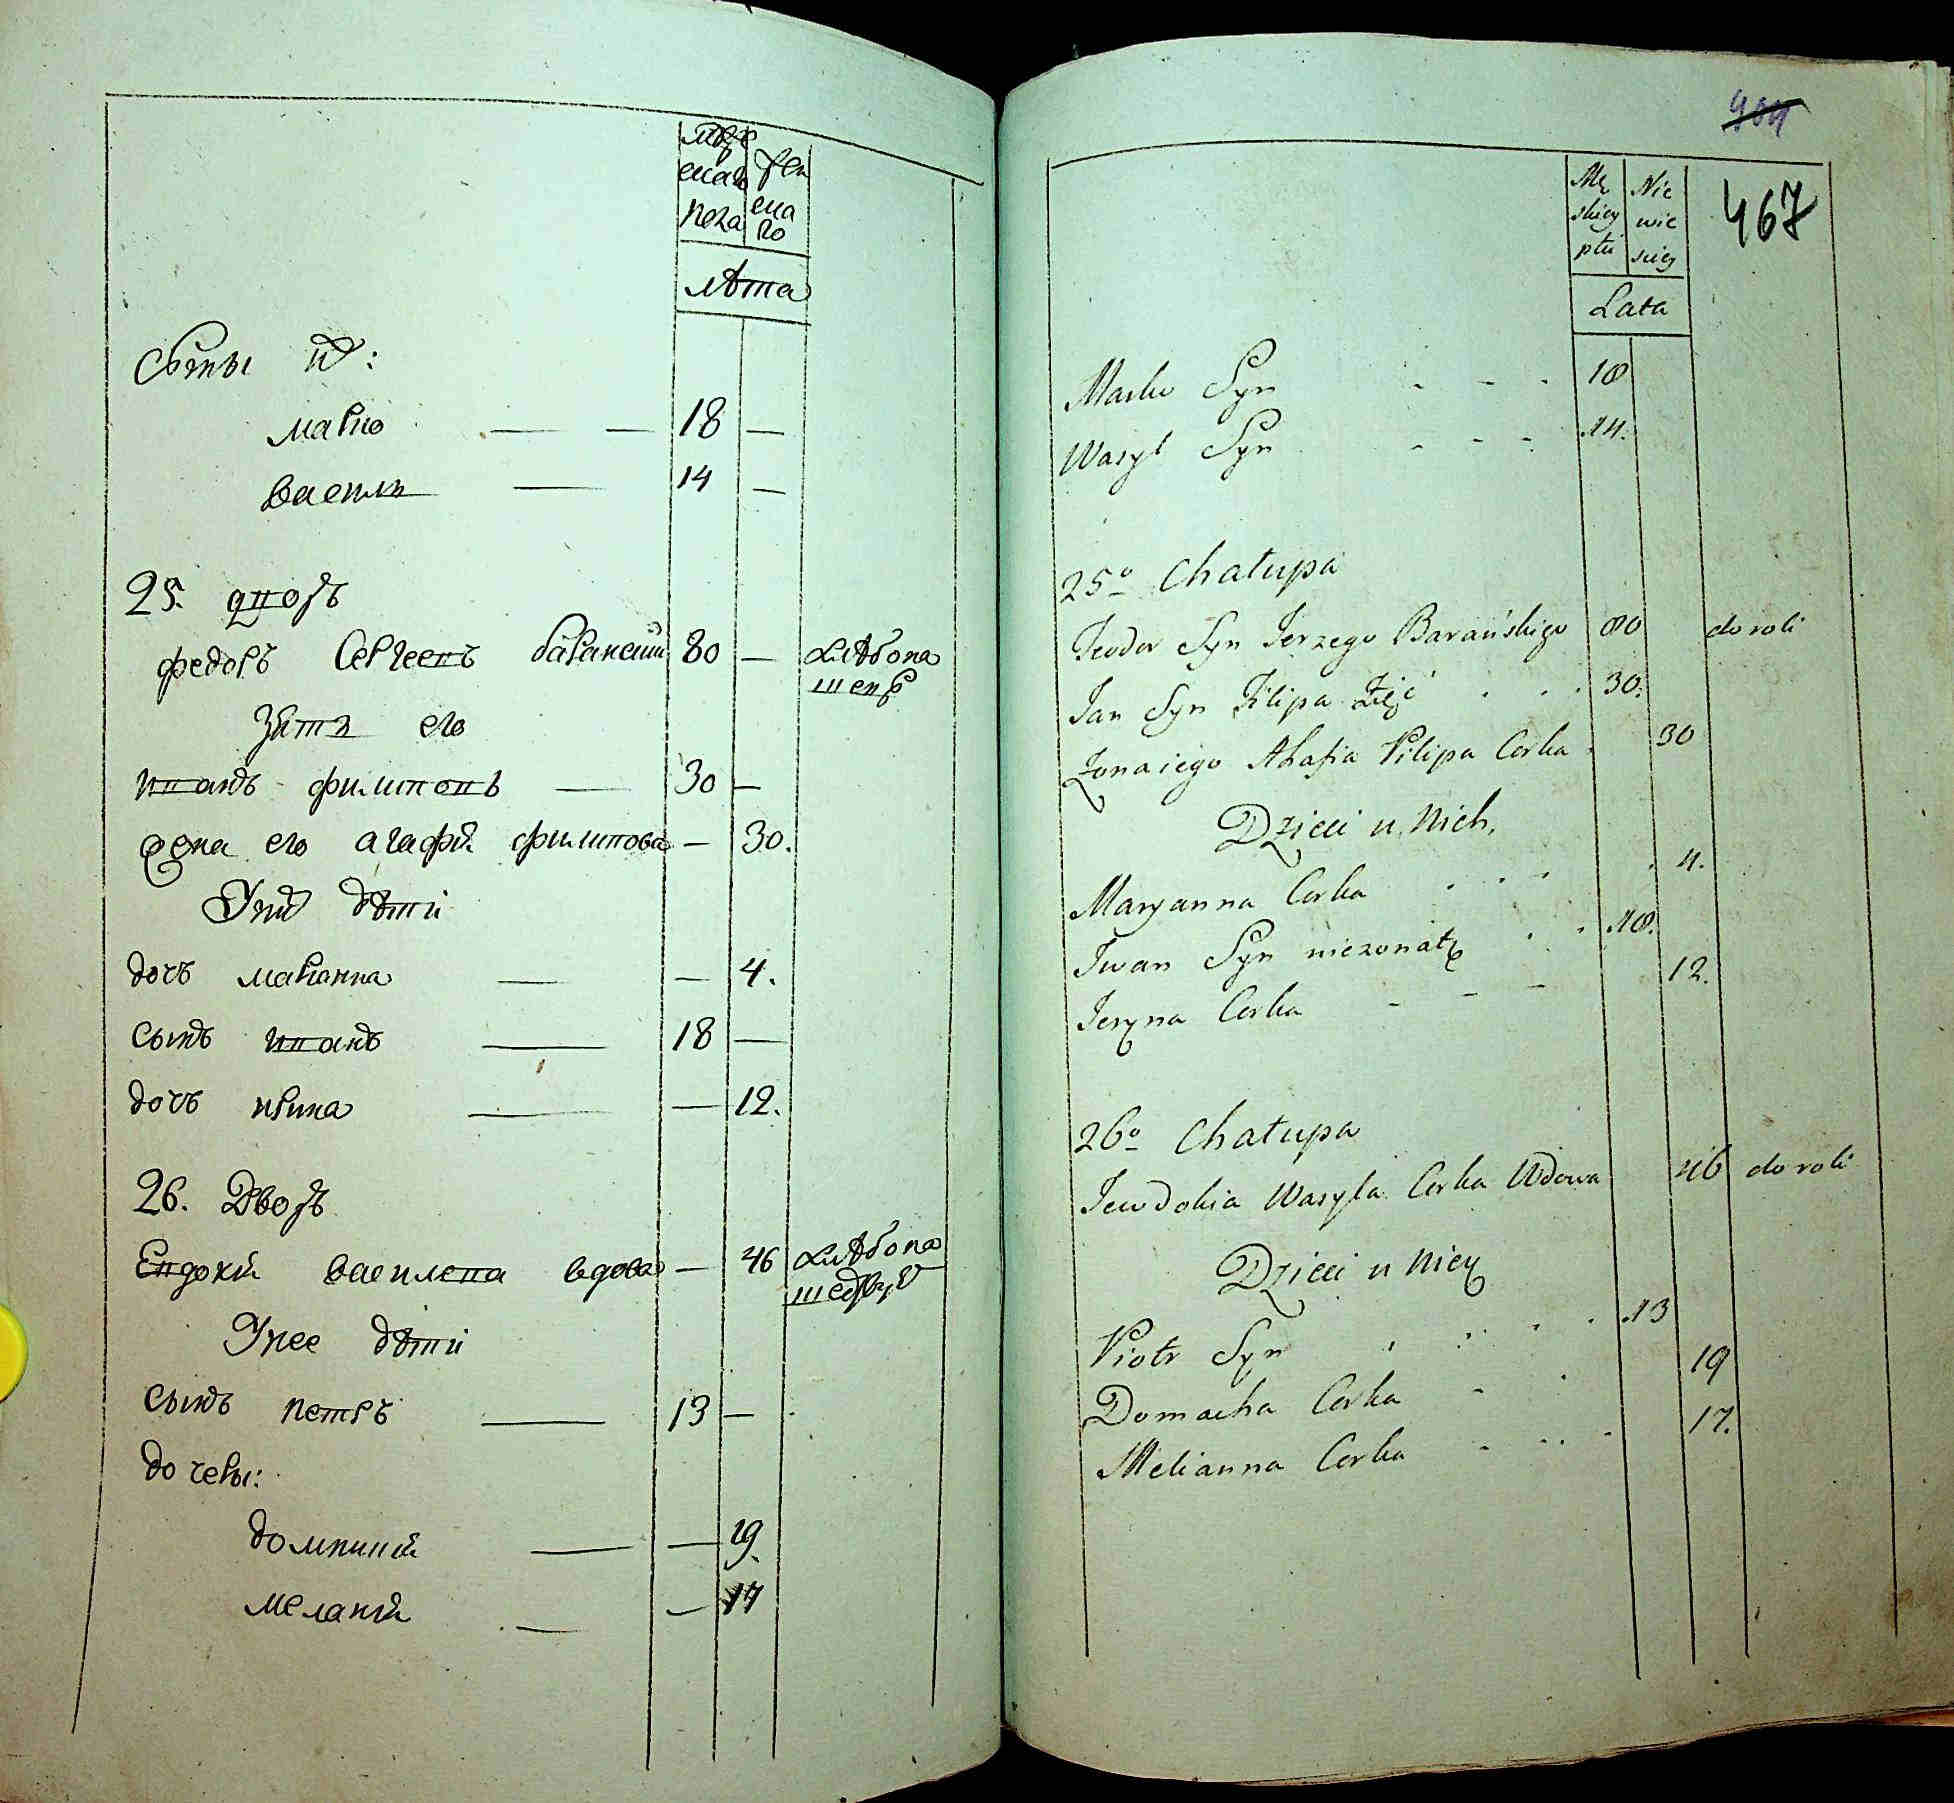 мужескаго пола
женскаго
лѣта
Сыны ихъ:
марко — — 18 —
василь — 14 —
25. дворъ
федоръ Сергеевъ баранский 80 — хлѣбопашецъ
Зять его
иванъ филиповъ — 30 —
жена его агафия филипова — 30.
У них дѣти
дочь марианна — — 4.
сынъ иванъ — 18 —
дочь ирина — — 12.
26. Дворъ
Евдокия василева вдова — 46 хлѣбопашествуетъ
У нее дѣти
сынъ петръ — 13 —
дочеры:
домникия — — 19.
мелания — — 17
404
467
Męskiey płci
Niewieściey
Lata
Marko Syn - - - 18
Wasyl Syn - - - 14.
25o Chałupa
Teodor Syn Jerzego Barańskiego 80 do roli
Jan Syn Filipa Zięć . . . 30.
Żona iego Ahafia Filipa Corka . 30
Dzieci u Nich.
Maryanna Corka . . . . 4.
Iwan Syn nieżonaty . . 18.
Jeryna Corka - - - 12.
26o Chałupa
Jewdokia Wasyla Corka Wdowa 46 do roli
Dzieci u Niey
Piotr Syn . . . . 13
Domacha Corka - . 19
Melianna Corka - . . - 17.